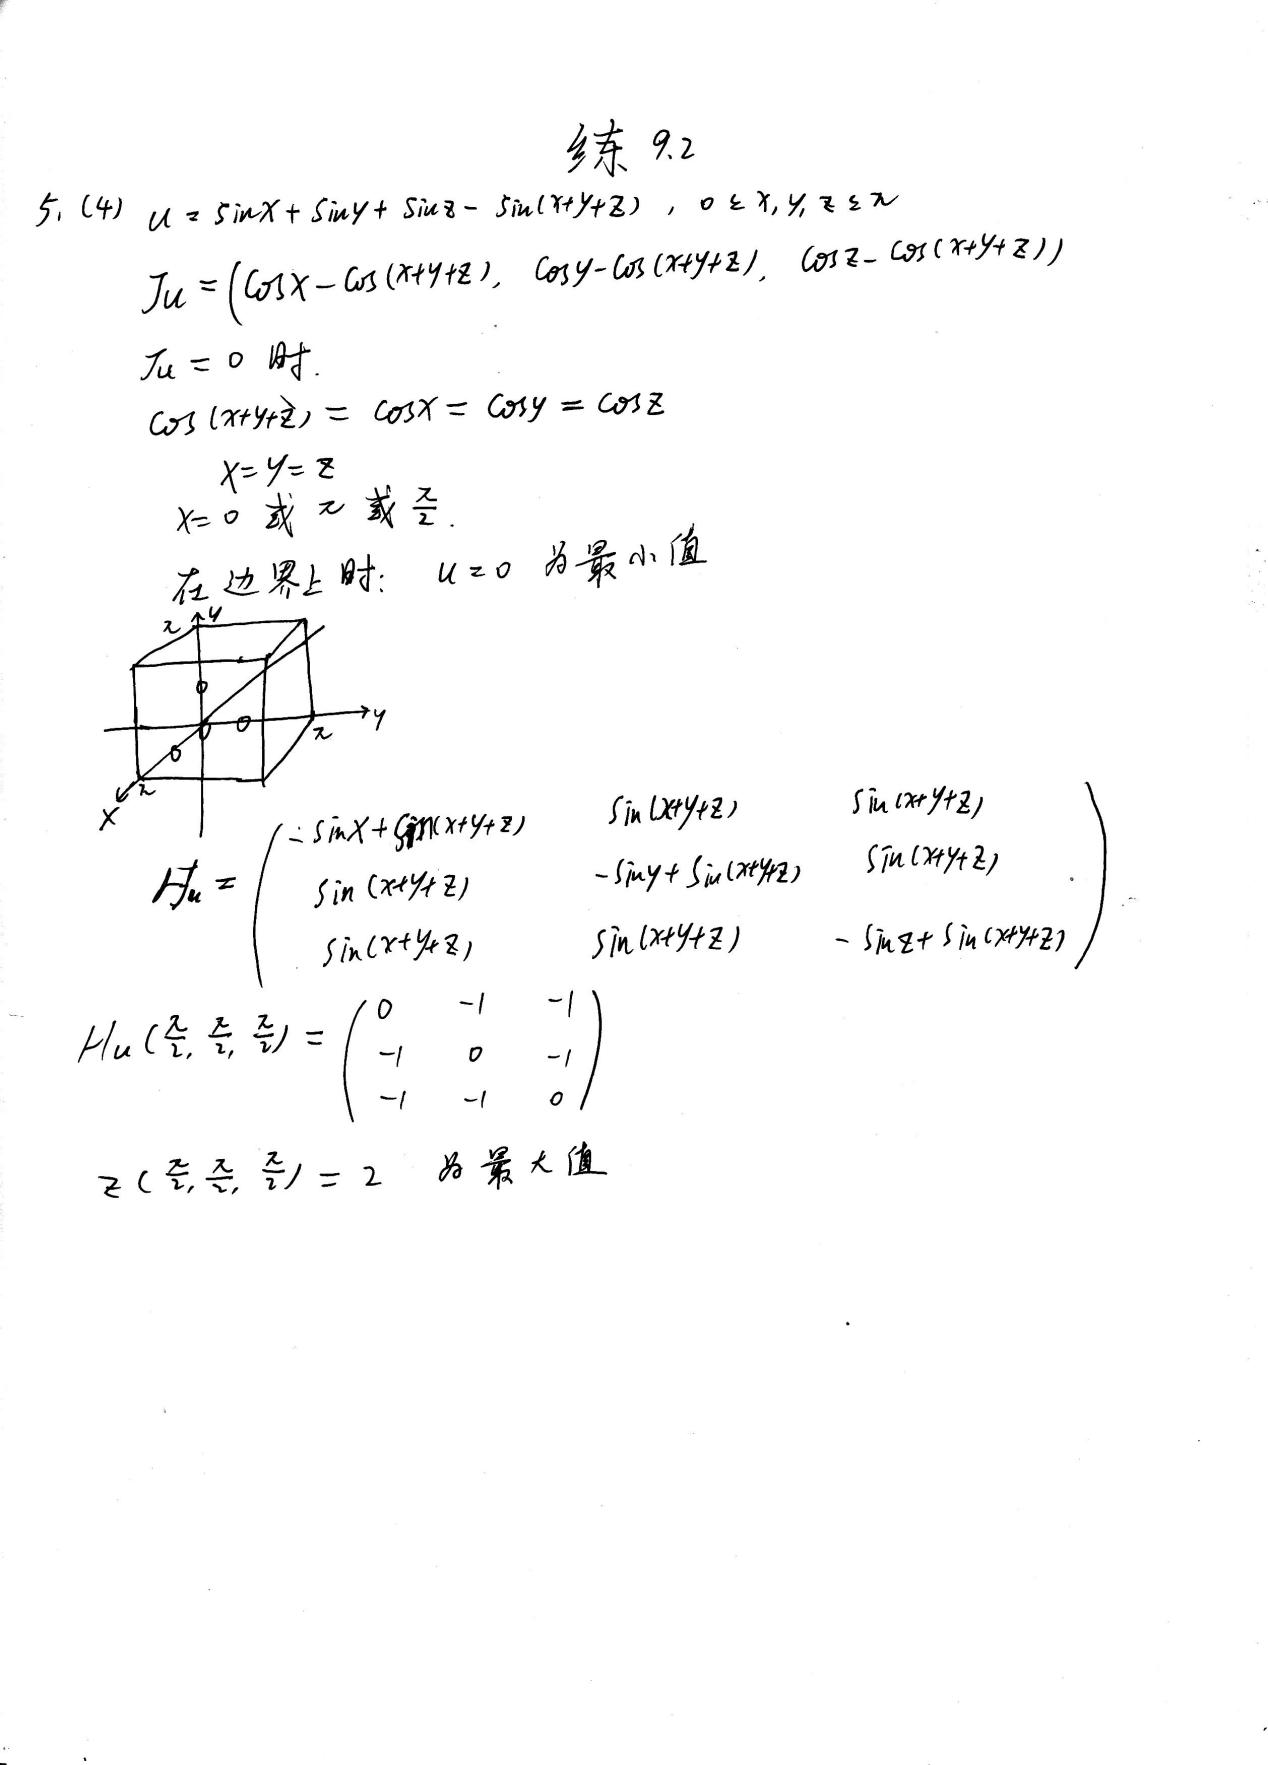 练 9.2
5. (4) u = sinx + siny + sinz - sin(x+y+z) , 0 ≤ x, y, z ≤ π
Ju = (cosx - cos(x+y+z), cosy - cos(x+y+z), cosz - cos(x+y+z))
Ju = 0 时.
cos(x+y+z) = cosx = cosy = cosz
x = y = z
x = 0 或 π 或 π/2.
在边界上时: u = 0 为最小值
π y
0
0 π y
0 0
x π
Hu = ( -sinx + sin(x+y+z) sin(x+y+z) sin(x+y+z)
sin(x+y+z) -siny + sin(x+y+z) sin(x+y+z)
sin(x+y+z) sin(x+y+z) -sinz + sin(x+y+z) )
Hu(π/2, π/2, π/2) = ( 0 -1 -1
-1 0 -1
-1 -1 0 )
z(π/2, π/2, π/2) = 2 为最大值